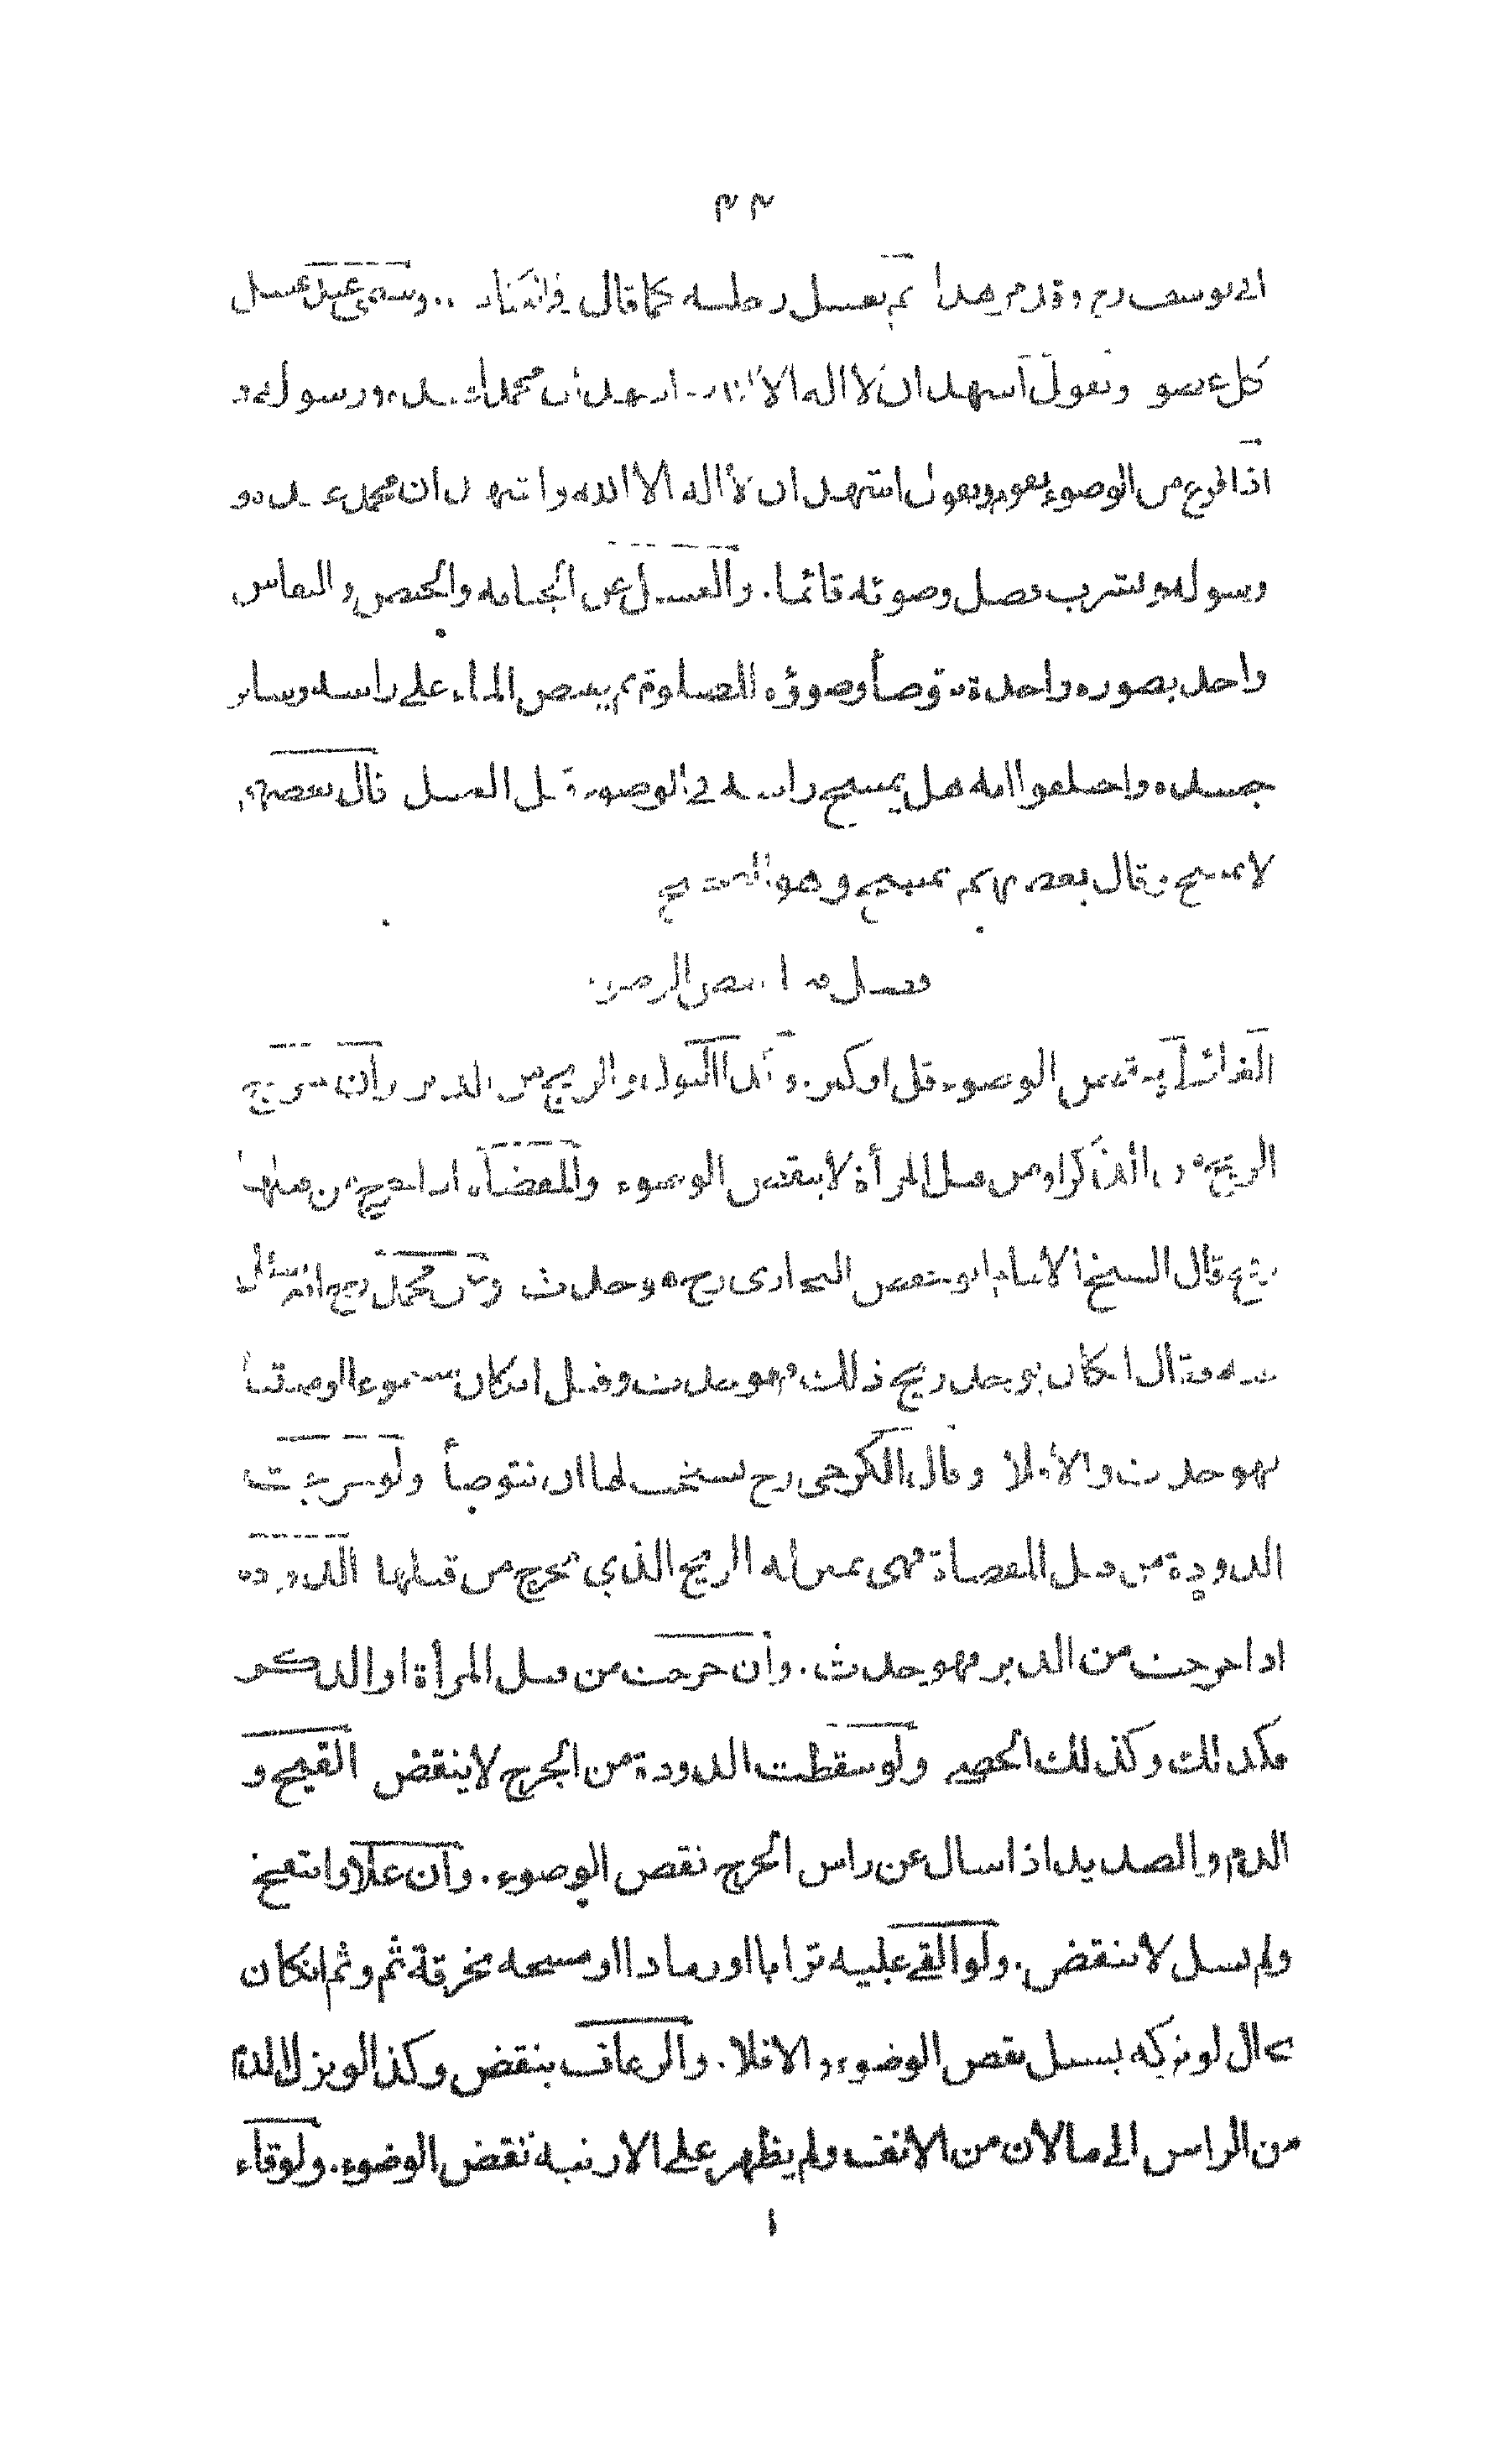 ٣٣
ابي يوسف رح وقد مر هذا ثم يغسل رجليه كما قال في عند غسل
كل عضو ويقول اشهد ان لا اله الا ان محمدا ورسوله و
اذا فرغ من الوضوء يقوم ويقول اشهد ان لا اله الا الله واشهد ان محمد عبده و
رسوله ويشرب فضل وضوئه قائما. والغسل عن الجنابه والحيض والنفاس
واحد بصوره واحدة يتوضأ وضوؤه للصلوة ثم يفيض الماء على راسه وساير
جسده واختلفوا انه هل يمسح راسه في الوضوء قبل الغسل قال بعضهم
لا يمسح وقال بعضهم يمسح وهو الصحيح
فصل فيما ينقض الوضوء
الغائط ينقض الوضوء قل او كثر. وكذا البول والريح من الدبر وان خرج
الريح من الذكر او من قبل المرأة لا ينقض الوضوء والمفضاة اذا خرج من قبلها
ريح قال الشيخ الامام ابو حفص البخارى رح هو حدث وعن محمد رح انه سئل
عنه فقال ان كان يوجد ريح ذلك فهو حدث وقيل ان كان مسموعا او منتنا
فهو حدث والا فلا وقال الكرخى رح يستحب لها ان تتوضأ ولو خرجت
الدودة من قبل المفضاة فهى بمنزله الريح الذي يخرج من قبلها الدوده
اذا خرجت من الدبر فهو حدث. وان خرجت من قبل المرأة او الذكر
فكذلك وكذلك الحصى ولو سقطت الدودة من الجرح لا ينقض القيح و
الدم والصديد اذا سال عن راس الجرح نقض الوضوء. وان علا وانتفخ
ولم يسل لا ينقض. ولو القي عليه ترابا او رمادا او مسحه بخرقة ثم وثم انكان
بحال لو تركه يسيل نقض الوضوء والا فلا. والرعاف ينقض وكذا لو نزل الدم
من الراس الى ما لان من الانف ولم يظهر على الارنبه نقض الوضوء. ولو قاء